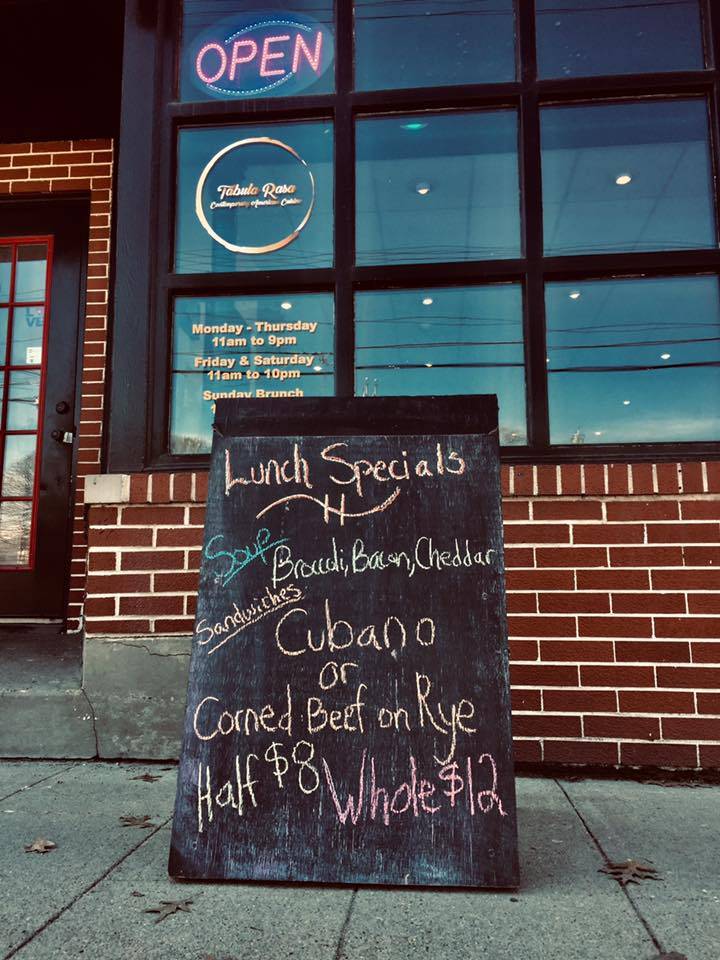 OPEN
Tabula Rasa
Contemporary American Cuisine
Monday - Thursday
11am to 9pm
Friday & Saturday
11am to 10pm
Sunday Brunch
Lunch Specials
Soup Broccoli, Bacon, Cheddar
Sandwiches
Cubano
or
Corned Beef on Rye
Half $8 Whole $12